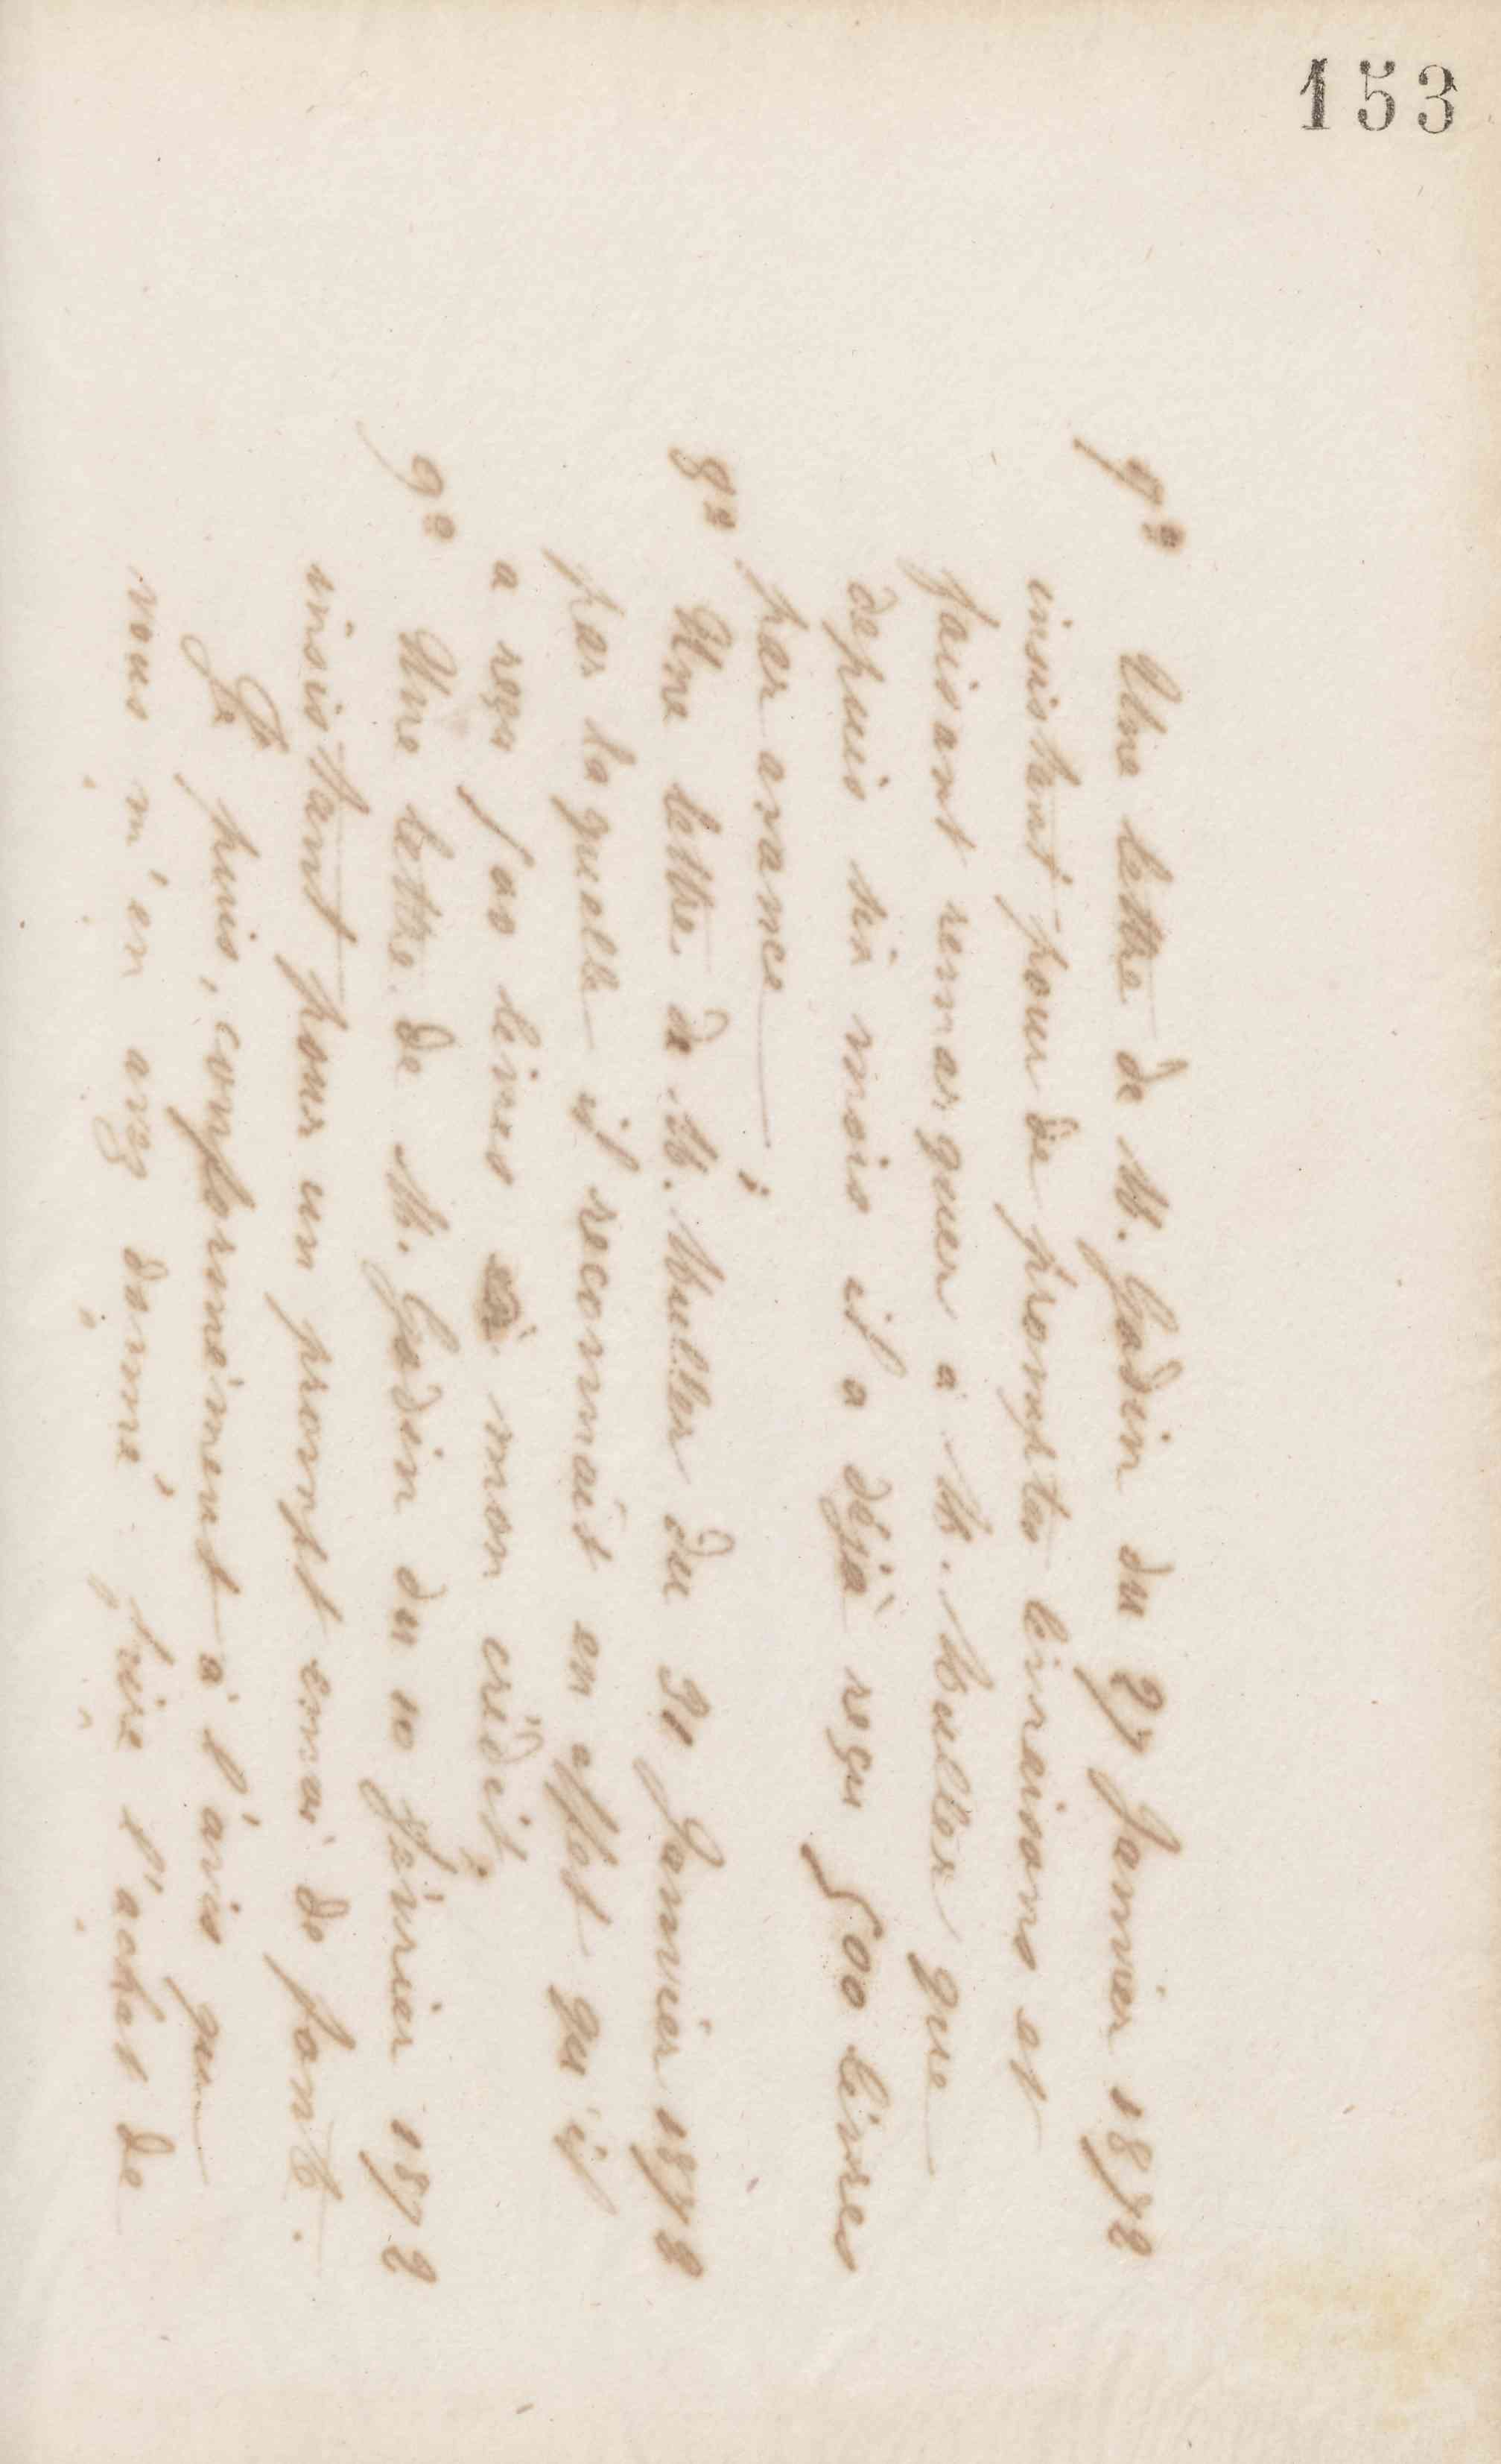 153
7º Une lettre de M. Godin du 27 Janvier 1872
insistant pour de promptes livraisons et
faisant remarquer à M. Muller que
depuis six mois il a déjà reçu 500 livres
par avance ;
8º Une lettre de M. Muller du 31 Janvier 1872
par laquelle il reconnait en effet qu'il
a reçu 500 livres à mon crédit ;
9º Une lettre de M. Godin du 10 février 1872
insistant pour un prompt envoi de fonte.
Je puis, conformément à l'avis que
vous m'en avez donné faire l'achat de